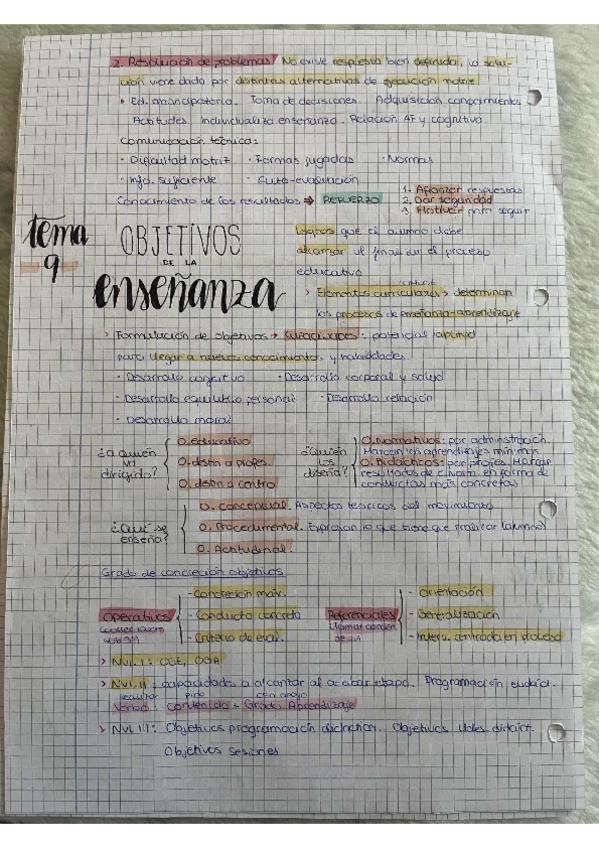 2. Resolución de problemas / No existe respuesta bien definida, la solu-
ción viene dada por distintas alternativas de ejecución motriz
• Ed. emancipatoria. Toma de decisiones. Adquisición conocimientos
Actitudes. Individualiza enseñanza. Relación AF y cognitivo.
Comunicación técnica:
· Dificultad motriz · Formas jugadas · Normas
· Info. suficiente · Auto-evaluación
Conocimiento de los resultados → REFUERZO
1. Afianzar respuestas
2. Dar seguridad
3. Motivar para seguir
tema 9
OBJETIVOS
DE LA
enseñanza
Logros que el alumno debe
alcanzar al finalizar el proceso
educativo
> Elementos curriculares > determinan
los procesos de enseñanza-aprendizaje
> Formulación de objetivos → capacidades: potencial aptitud
para llegar a nuevos conocimientos y habilidades.
· Desarrollo cognitivo · Desarrollo corporal y salud
· Desarrollo equilibrio personal · Desarrollo relación
· Desarrollo moral
¿a quién va dirigido?
O. educativo
O. destin a profes.
O. destin a centro
¿Quién los diseña?
O. Normativos: por administración.
Marcan los aprendizajes mínimos
O. Didácticos: por profes. Marcar
resultados de enseñ. en forma de
conductas más concretas
¿Qué se enseña?
O. conceptual. Aspectos teóricos del movimiento
O. Procedimental. Expresan lo que tiene que realizar (alumno)
O. Actitudinal.
Grado de concreción objetivos
Operativos
- Concreción máx.
- Conducta concreta
- Criterio de eval.
Referenciales
- Orientación
- Generalización
- Interv. centrada en proceso
> Nvl. I: OGE, OGA
> Nvl. II: capacidades a alcanzar al acabar etapa. Programación
Verbo + Contenido + Grado Aprendizaje
> Nvl III: Objetivos programación didáctica. Objetivos Udes didáct.
Objetivos sesiones